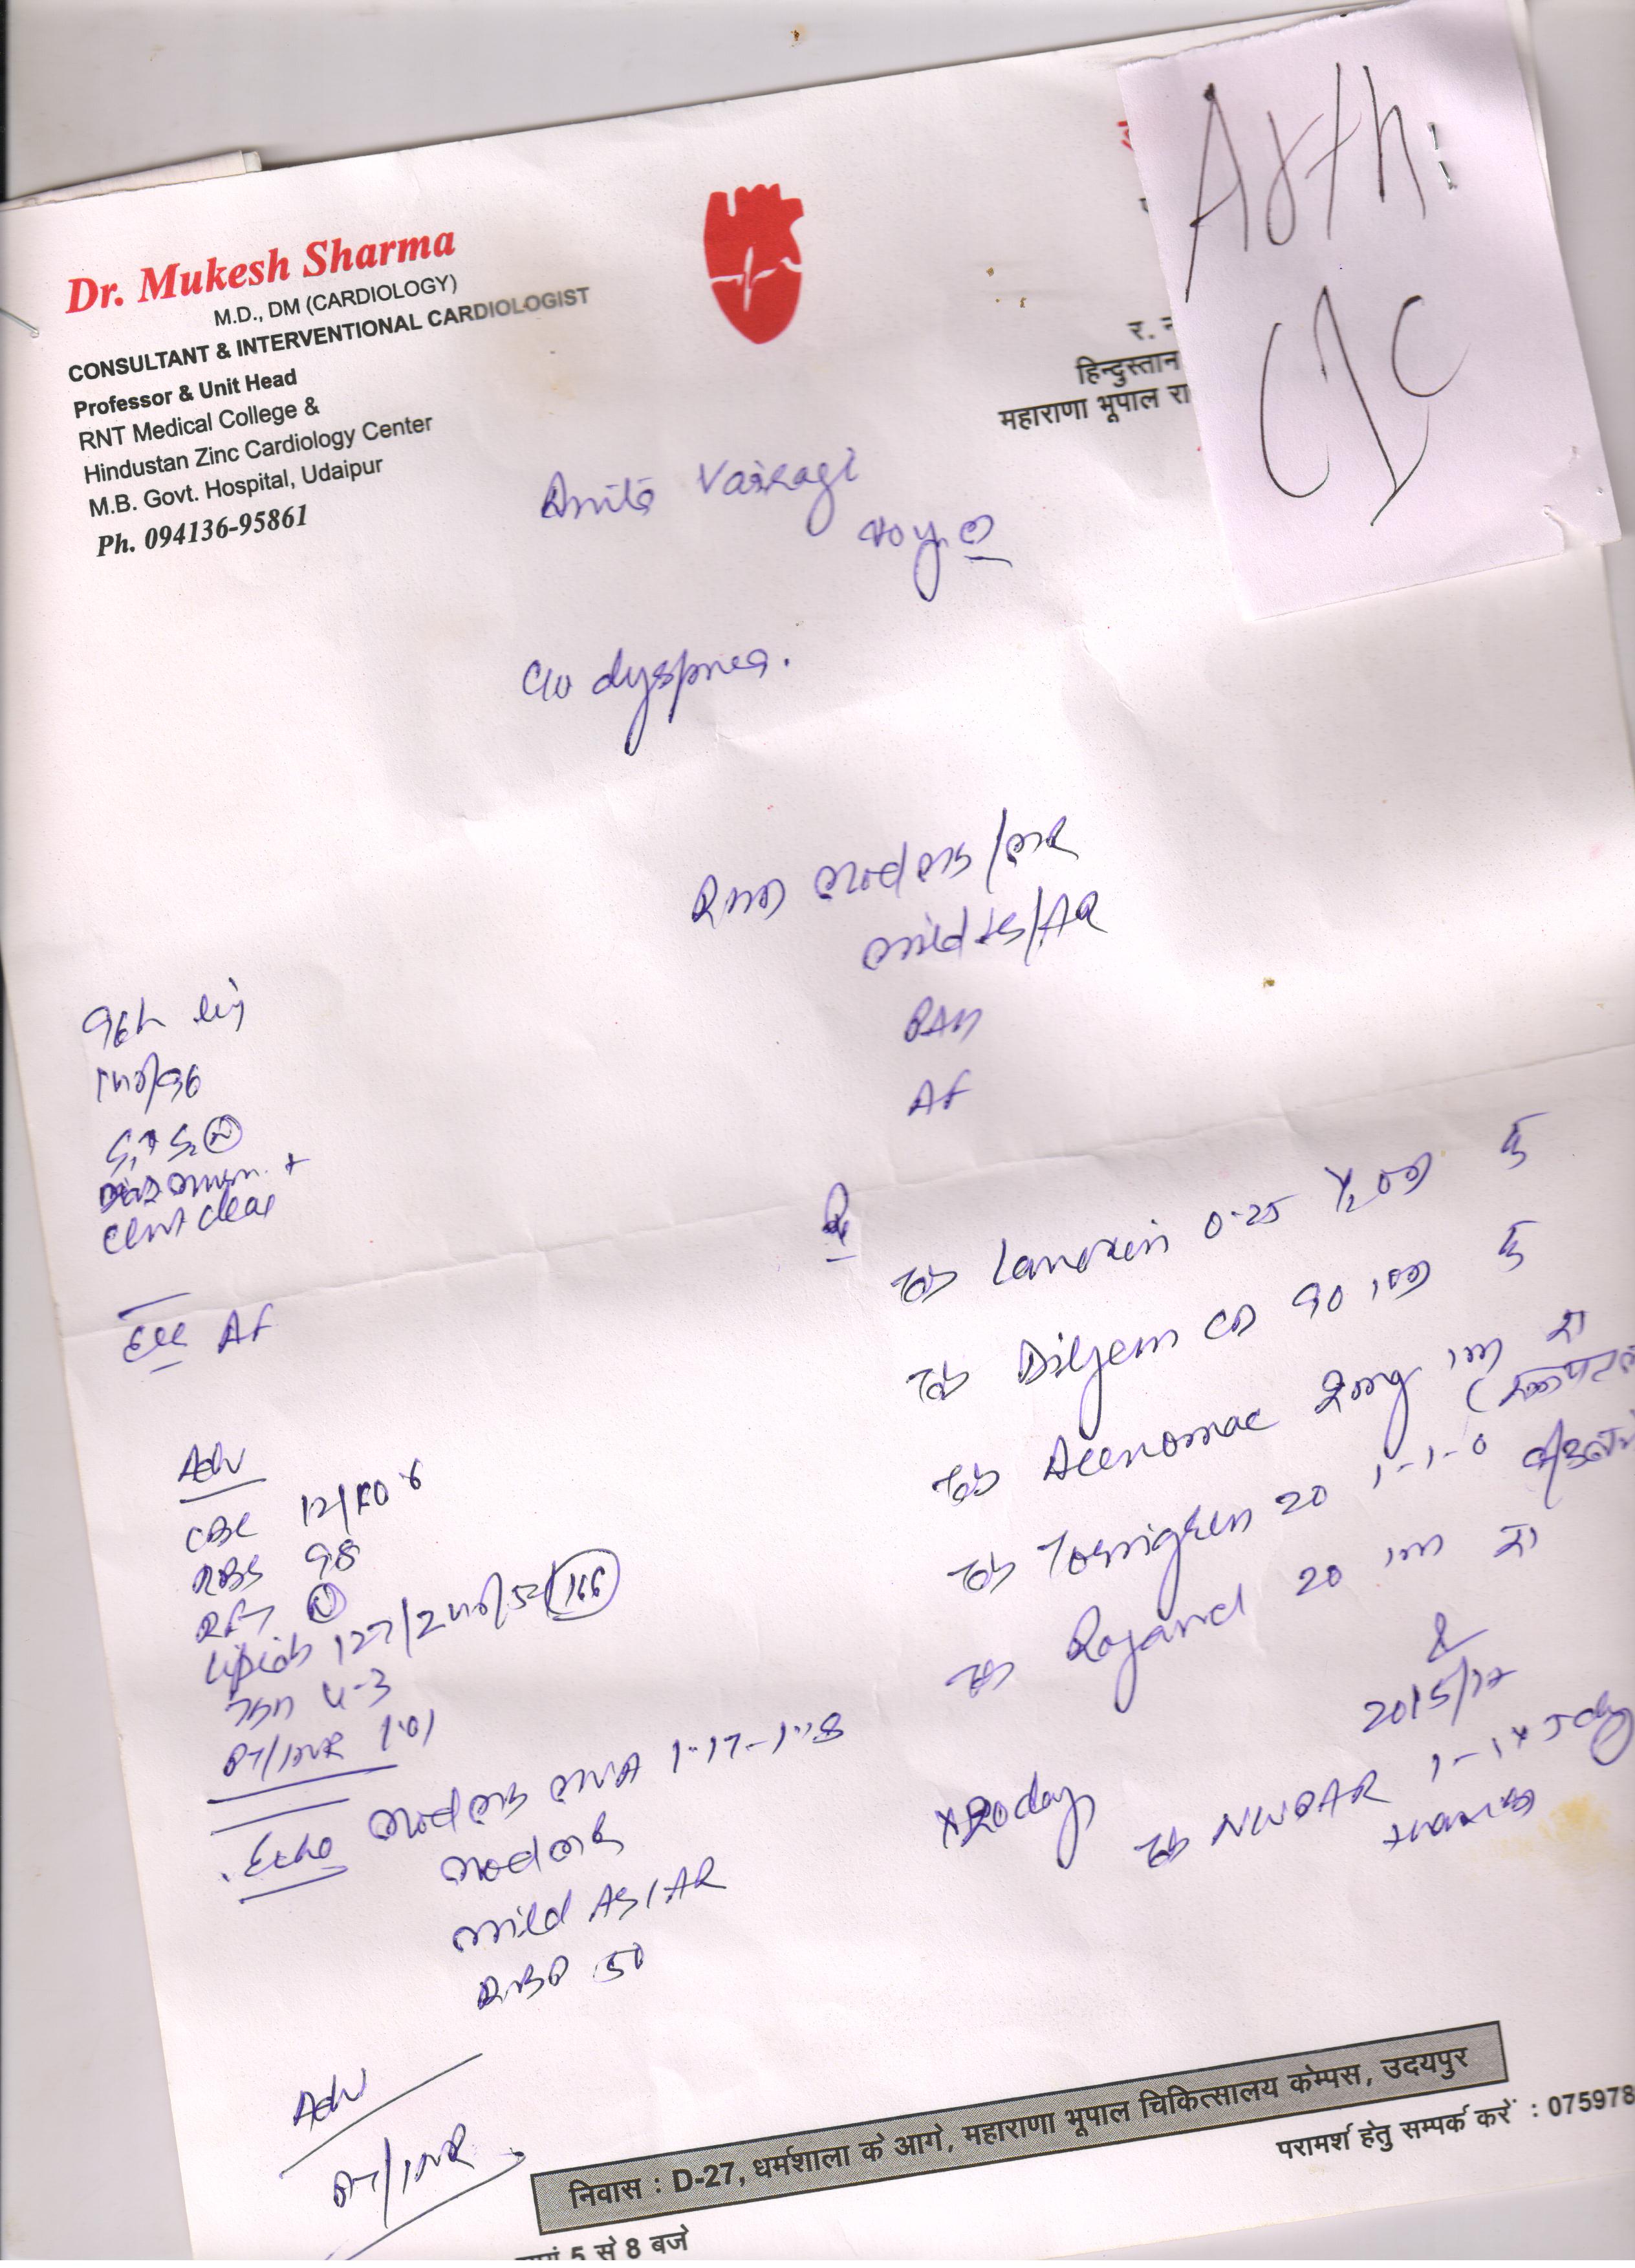 Arth:
CIC
Dr. Mukesh Sharma
M.D., DM (CARDIOLOGY)
CONSULTANT & INTERVENTIONAL CARDIOLOGIST
Professor & Unit Head
RNT Medical College &
Hindustan Zinc Cardiology Center
M.B. Govt. Hospital, Udaipur
Ph. 094136-95861
र. न
हिन्दुस्तान
महाराणा भूपाल रा
Anita Vairagi
40y
c/o dyspnea.
RHD mod MS/MR
mild AS/AR
PAH
AF
96/
140/96
S1↑ S2 (N)
murm. +
chest clear
ECG AF
Adv
CBC 12/
RBS 98
RFT (N)
Lipids 127/240/52/166
TSH 4.3
PT/INR 1.01
Echo mod MS MVA 1.17-1.18
mod MR
mild AS/AR
50
Adv
PT/INR
Rx
Tab Lanoxin 0.25 ½ OD
Tab Dilgem CD 90 1 OD
Tab Acenomac 2mg
Tab 20 1-1-0
Tab 20
2015/17
x 20 days
Tab 1-1 x 5 days
निवास : D-27, धर्मशाला के आगे, महाराणा भूपाल चिकित्सालय केम्पस, उदयपुर
परामर्श हेतु सम्पर्क करें : 075978
5 से 8 बजे